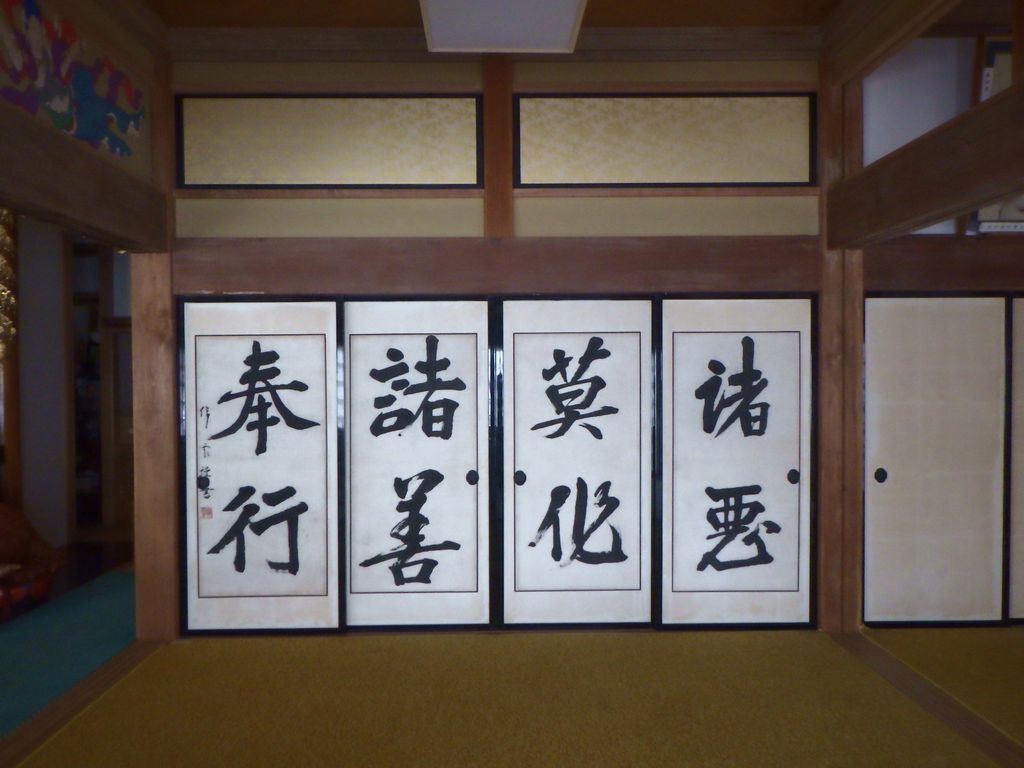 諸悪
莫作
諸善
奉行